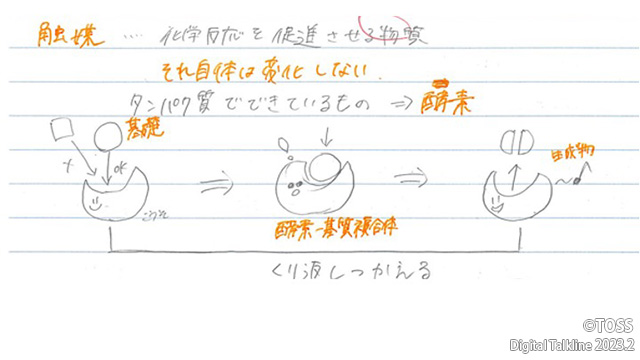 触媒 … 化学反応を促進させる物質
それ自体は変化しない.
タンパク質でできているもの ⇒ 酵素
基礎
× OK
こうそ
酵素-基質複合体
生成物
くり返しつかえる
©TOSS
Digital Talkline 2023.2